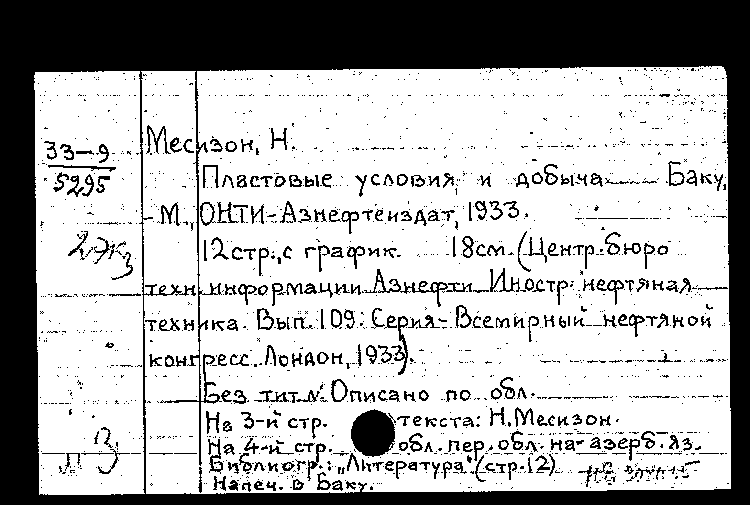 33-9
5295
2 экз
Месизон, Н.
Пластовые условия и добыча Баку,
-М., ОНТИ-Азнефтеиздат, 1933.
12 стр., с график. 18 см. (Центр. бюро
техн. информации Азнефти. Иностр. нефтяная
техника. Вып. 109: Серия-Всемирный нефтяной
конгресс. Лондон, 1933).
Без тит. л. Описано по обл.
На 3-й стр. текста: Н. Месизон.
На 4-й стр. обл. пер. обл. на азерб. яз.
Библиогр.: "Литература" (стр. 12)
Напеч. в Баку.